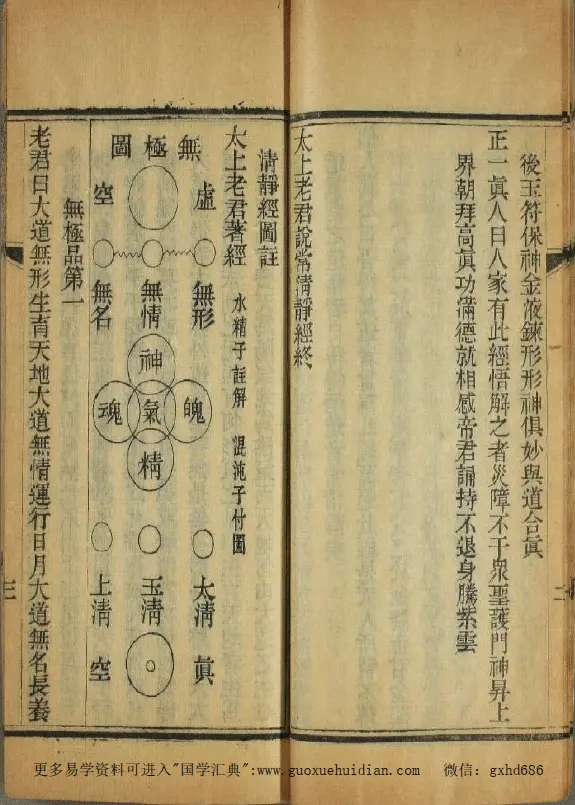 後玉符保神金液鍊形形神俱妙與道合眞
正一眞人曰人家有此經悟解之者災障不干衆聖護門神昇上
界朝拜高眞功滿德就相感帝君誦持不退身騰紫雲
太上老君說常清靜經終
二
清靜經圖註
太上老君著經 水精子註解 混沌子付圖
無極圖
虛 空
無形 無情 無名
神
魄 氣 魂
精
太清 玉清 上清
眞 空
無極品第一
老君曰大道無形生育天地大道無情運行日月大道無名長養
三
更多易学资料可进入"国学汇典":www.guoxuehuidian.com 微信：gxhd686